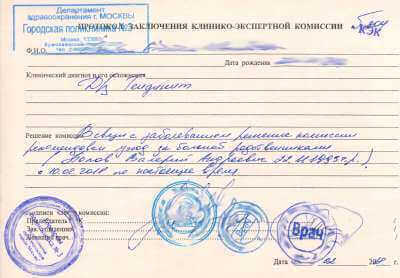 Департамент
здравоохранения г. МОСКВЫ
Городская поликлиника №3
ПРОТОКОЛ ЗАКЛЮЧЕНИЯ КЛИНИКО-ЭКСПЕРТНОЙ КОМИССИИ
КЭК
Ф.И.О.
Дата рождения
Клинический диагноз и его осложнения
Дз
Решение комиссии В связи с заболеванием решение комиссии
рекомендован уход за больной родственниками
Валерий Андреевич 22.11.1993 г.р.)
с 10.02.2018 по настоящее время
Подписи чл. комиссии:
Председатель
Зав. отделением
Лечащий врач
Врач
Дата 02